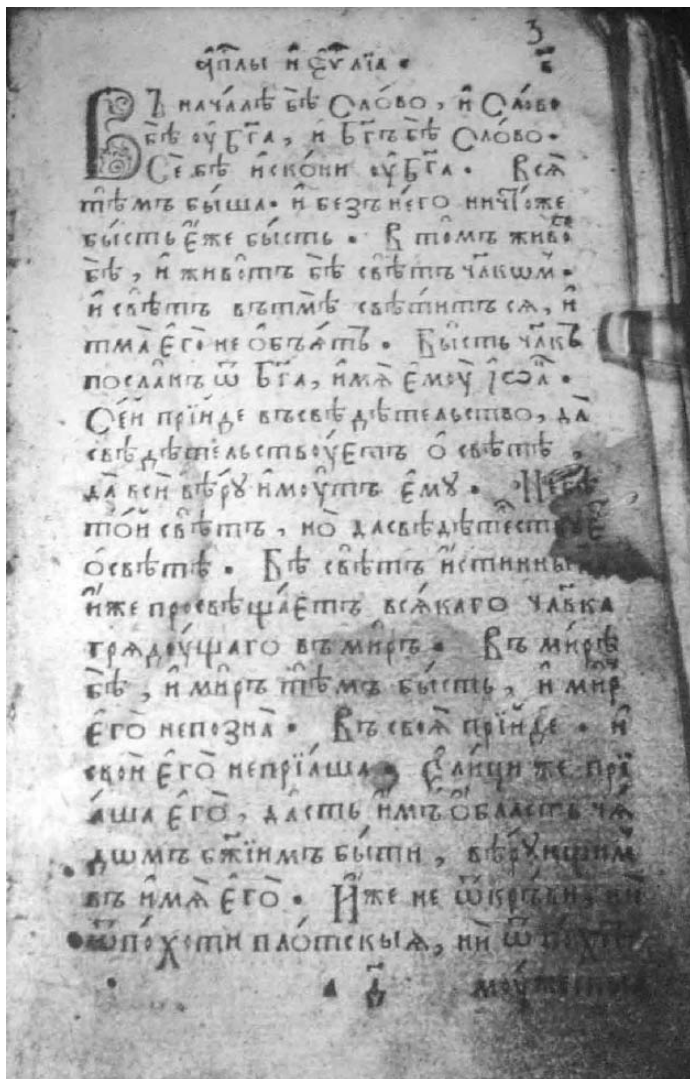 а҆п҃лы и҆ є҆ѵ҃лїа •
Въ нача́лѣ бѣ̀ Сло́во, и҆ Сло́во
бѣ̀ оу҆ Бг҃а, и҆ Бг҃ъ бѣ̀ Сло́во •
Сѐ бѣ̀ и҆ско́ни оу҆ Бг҃а • Всѧ̑
тѣ́мъ бы́ша • и҆ безъ не́го ничто́же
бы́сть є҆́же бы́сть • В то́мъ живо
бѣ̀, и҆ живо́тъ бѣ̀ свѣ́тъ чл҃кѡм •
и҆ свѣ́тъ въ тмѣ̀ свѣ́титъ сѧ, и҆
тма̀ є҆го̀ не ѻ҆бъѧ́тъ • Бы́сть чл҃къ
посла́нъ ѿ Бг҃а, и҆́мѧ є҆моу̀ і҆ѡа •
Се́й прїи́де въ свѣдѣ́тельство, да̀
свѣдѣ́тельствоуетъ ѻ҆ свѣ́тѣ,
да̀ всѝ вѣ́ру и҆моу́тъ є҆му • Не бѣ̀
то́й свѣ́тъ, но̀ да свѣдѣ́те ст
ѻ҆ свѣ́тѣ • Бѣ̀ свѣ́тъ и҆́стинны
и҆́же просвѣща́етъ всѧ́каго чл҃вка
грѧдоу́щаго въ ми́ръ • Въ ми́рѣ
бѣ̀, и҆ ми́ръ тѣ́мъ бы́сть, и҆ мир
є҆го̀ не позна̀ • Въ своѧ̀ прїи́де • и҆
своѝ є҆го̀ не прїа́ша • Є҆ли́ци же прї
а́ша є҆го̀, да́сть и҆́мъ ѻ҆́бласть чѧ́
дѡмъ бж҃їимъ бы́ти, вѣ́рующим
въ и҆́мѧ є҆го̀ • И҆́же не ѿ кръви, нѝ
ѿ по́хоти пло́тскыѧ, нѝ ѿ по́хоти
моу́жескыѧ